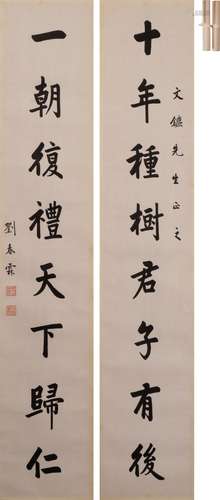 文鑣先生正之
十年種樹君子有後
一朝復禮天下歸仁
劉春霖